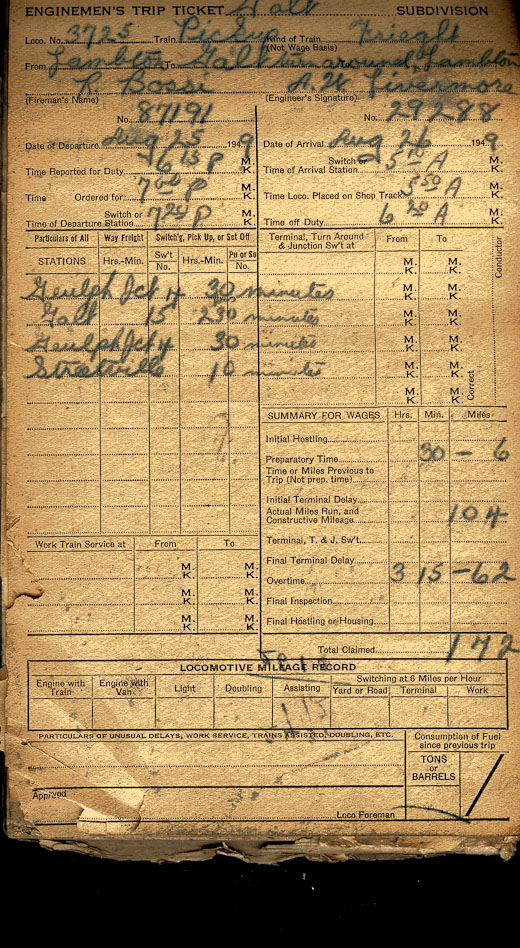 ENGINEMEN'S TRIP TICKET Galt SUBDIVISION
Loco. No. 3725 Train Pickup Kind of Train Frieght
(Not Wage Basis)
From Lambton To Galt turnaround Lambton
Bossi A. W. Livermore
(Fireman's Name) (Engineer's Signature)
No. 87191 No. 29288
Date of Departure Aug 25 1949 Date of Arrival Aug 26 1949
Time Reported for Duty 6 15 P M. K. Switch or Time of Arrival Station A M. K.
Time Ordered for 7 00 P M. K. Time Loco. Placed on Shop Track 5 50 A M. K.
Switch or Time of Departure Station 7 20 P M. K. Time off Duty 6 20 A M. K.
Particulars of All Way Freight Switch'g, Pick Up, or Set Off Terminal, Turn Around & Junction Sw't at From To Conductor
STATIONS Hrs.-Min. Sw't No. Hrs.-Min. Pu or So No. M. K. M. K.
Geulph Jct 4 30 minutes M. K. M. K.
Galt 15 230 minutes M. K. M. K.
Geulph Jct 4 30 minutes M. K. M. K.
Streetville 10 minutes M. K. M. K. Correct
SUMMARY FOR WAGES Hrs. Min. Miles
Initial Hostling
Preparatory Time 30 – 6
Time or Miles Previous to
Trip (Not prep. time)
Initial Terminal Delay
Actual Miles Run, and
Constructive Mileage 104
Terminal, T. & J. Sw't.
Final Terminal Delay
Overtime 3 15 – 62
Final Inspection
Final Hostling or Housing
Work Train Service at From To
M. K. M. K.
M. K. M. K.
M. K. M. K.
Total Claimed 172
LOCOMOTIVE MILEAGE RECORD
Engine with Train Engine with Van Light Doubling Assisting Switching at 6 Miles per Hour
Yard or Road Terminal Work
PARTICULARS OF UNUSUAL DELAYS, WORK SERVICE, TRAINS ASSISTED, DOUBLING, ETC. Consumption of Fuel since previous trip
TONS
or
BARRELS
Approved
Loco Foreman